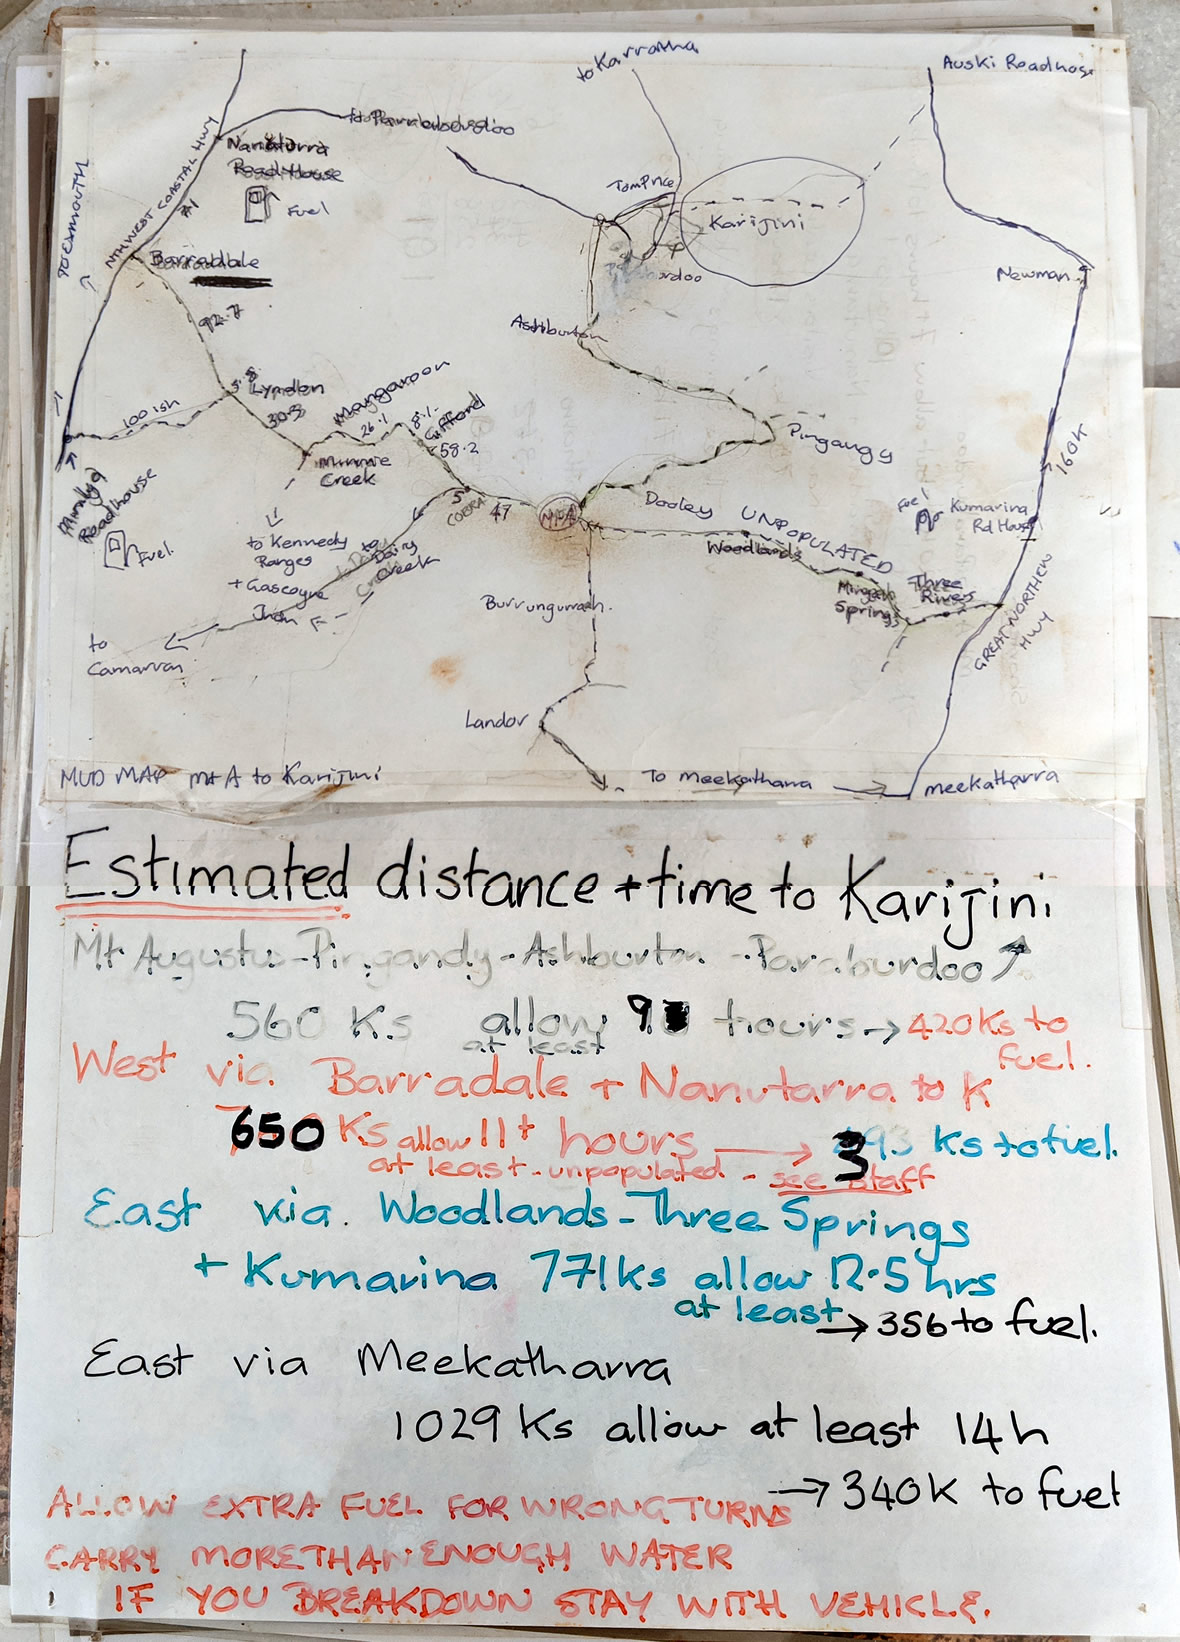 to Karratha
Auski Roadhouse
to Paraburdoo
NTH WEST COASTAL HWY
TO EXMOUTH
Nanutarra
Roadhouse
Fuel
Tom Price
Karijini
Barradale
Newman
92.7
Ashburton
5.8
Lyndon
30.3
100 ish
Mangaroon
26.1
8.1
Gifford
58.2
Pingandy
160K
Minnie
Creek
Minilya
Roadhouse
Fuel.
5
COBRA
47
Mt A
Dooley
UNPOPULATED
Woodlands
Fuel
Kumarina
Rd House
to Kennedy
Ranges
+ Gascoyne
Jnctn
to
Dairy
Creek
Three
Rivers
Springs
GREAT NORTHERN
HWY
to
Carnarvon
Landor
MUD MAP Mt A to Karijini
To Meekatharra
Meekatharra
Estimated distance + time to Karijini
Mt Augustus - Pingandy - Ashburton - Paraburdoo
560 Ks allow 9 hours → 420Ks to
at least
fuel.
West via Barradale + Nanutarra to K
650 Ks allow 11+ hours → 393 Ks to fuel.
at least - unpopulated - see staff
East via. Woodlands - Three Springs
+ Kumarina 771ks allow 12.5 hrs
at least → 356 to fuel.
East via Meekatharra
1029 Ks allow at least 14h
→ 340K to fuel
ALLOW EXTRA FUEL FOR WRONG TURNS
CARRY MORE THAN ENOUGH WATER
IF YOU BREAKDOWN STAY WITH VEHICLE.